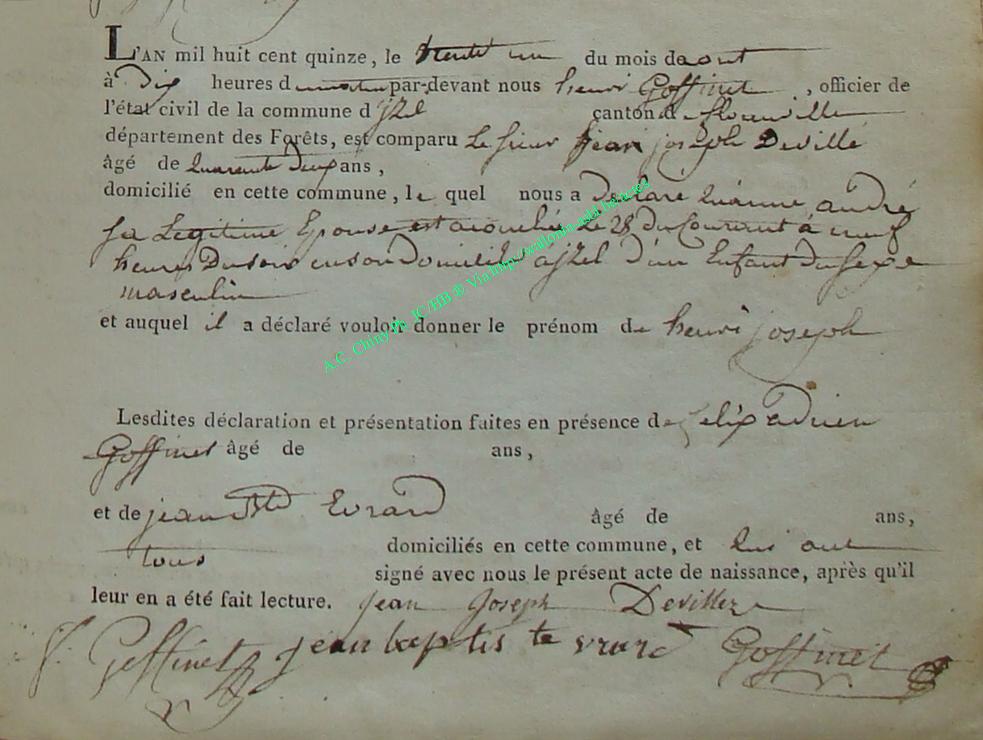 L'AN mil huit cent quinze, le trente un du mois de aout
à Dix heures d matin par-devant nous henri Goffinet, officier de
l'état civil de la commune d'jzel canton de florenville
département des Forêts, est comparu Le sieur jean joseph Deville
âgé de quarente deux ans,
domicilié en cette commune, le quel nous a declaré andré
sa Legitime Epouse est acouchée Le 28 du Courent à neuf
heures Du soir en son domicile à jzel D'un Enfant du sexe
masculin
et auquel il a déclaré vouloir donner le prénom de henri joseph
Lesdites déclaration et présentation faites en présence de felix adrien
Goffinet âgé de ans,
et de jean Bte Evrard âgé de ans,
tous domiciliés en cette commune, et qui ont
signé avec nous le présent acte de naissance, après qu'il
leur en a été fait lecture. jean Joseph Devillez
f. Goffinet jean baptiste evrard Goffinet
A.C. Chiny © JC/HB ® Via http://wallonia-asbl.be/actes